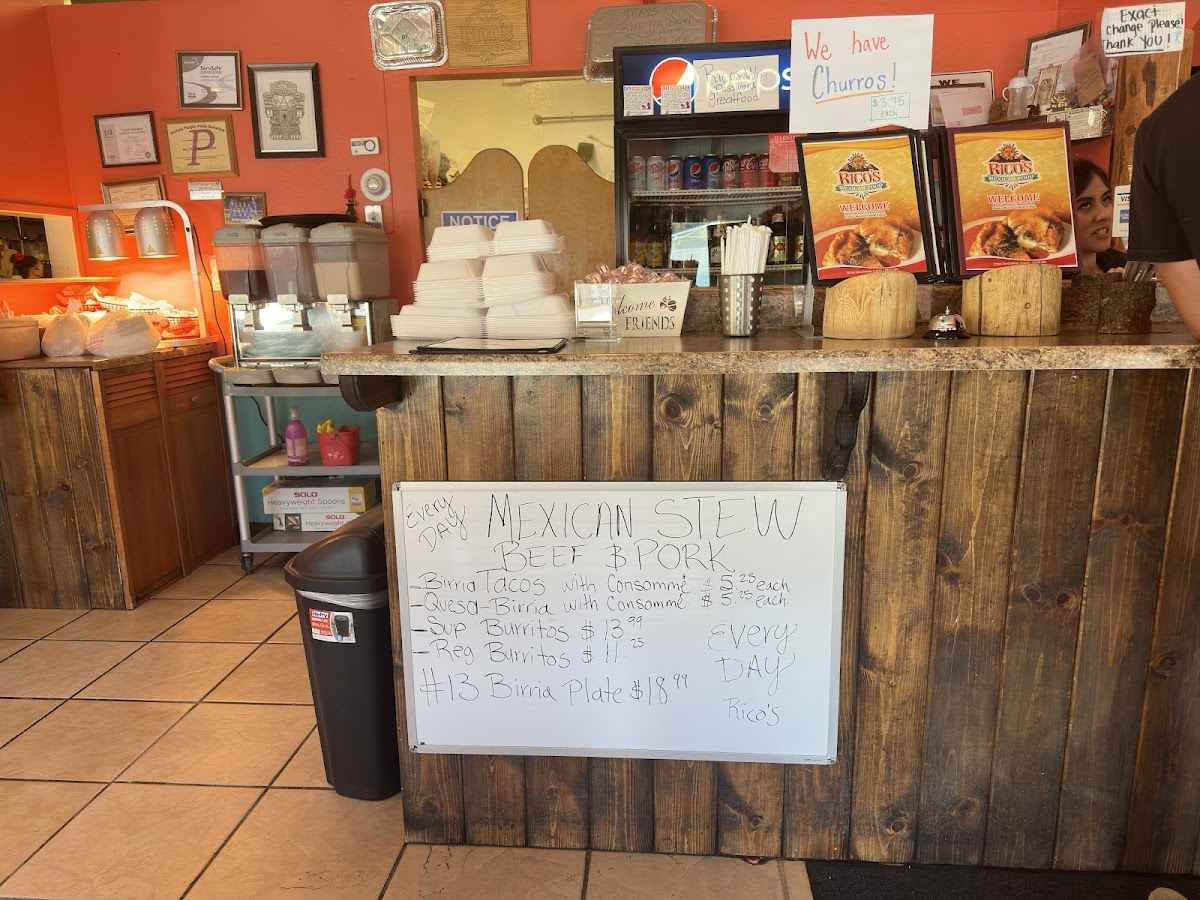 We have
Churros!
$3.75
each
Exact
change Please!
Thank You!
pepsi
greatfood
ServSafe
P
NOTICE
RICO'S
MEXICAN FOOD
WELCOME
RICO'S
MEXICAN FOOD
WELCOME
WE
VISA
Welcome
FRIENDS
SOLO
Heavyweight Spoons
SOLO
Heavyweight
Hefty
Every
DAY
MEXICAN STEW
BEEF & PORK
-Birria Tacos with Consommé $5.25 each
-Quesa-Birria with Consommé $5.25 each
-Sup Burritos $13.99
-Reg Burritos $11.25
#13 Birria Plate $18.99
Every
DAY
Rico's